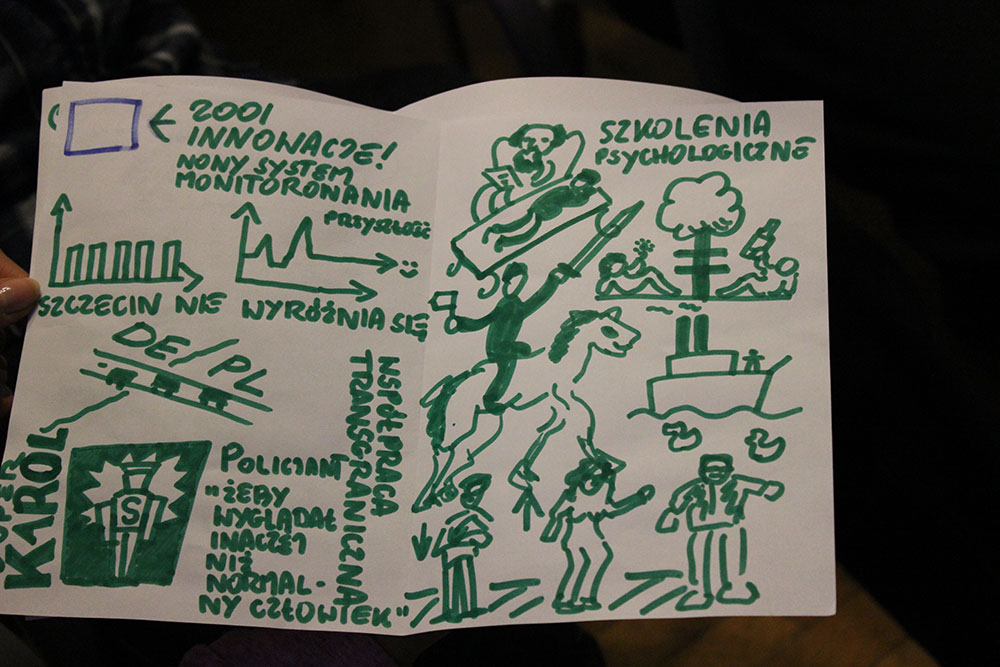 2001
INNOWACJE!
NOWY SYSTEM
MONITOROWANIA
PRZYSZŁOŚĆ
SZCZECIN NIE WYRÓŻNIA SIĘ
DE/PL
SUPER
KAROL
S
POLICJANT
"ŻEBY
WYGLĄDAŁ
INACZEJ
NIŻ
NORMAL-
NY CZŁOWIEK"
WSPÓŁPRACA
TRANSGRANICZNA
SZKOLENIA
PSYCHOLOGICZNE